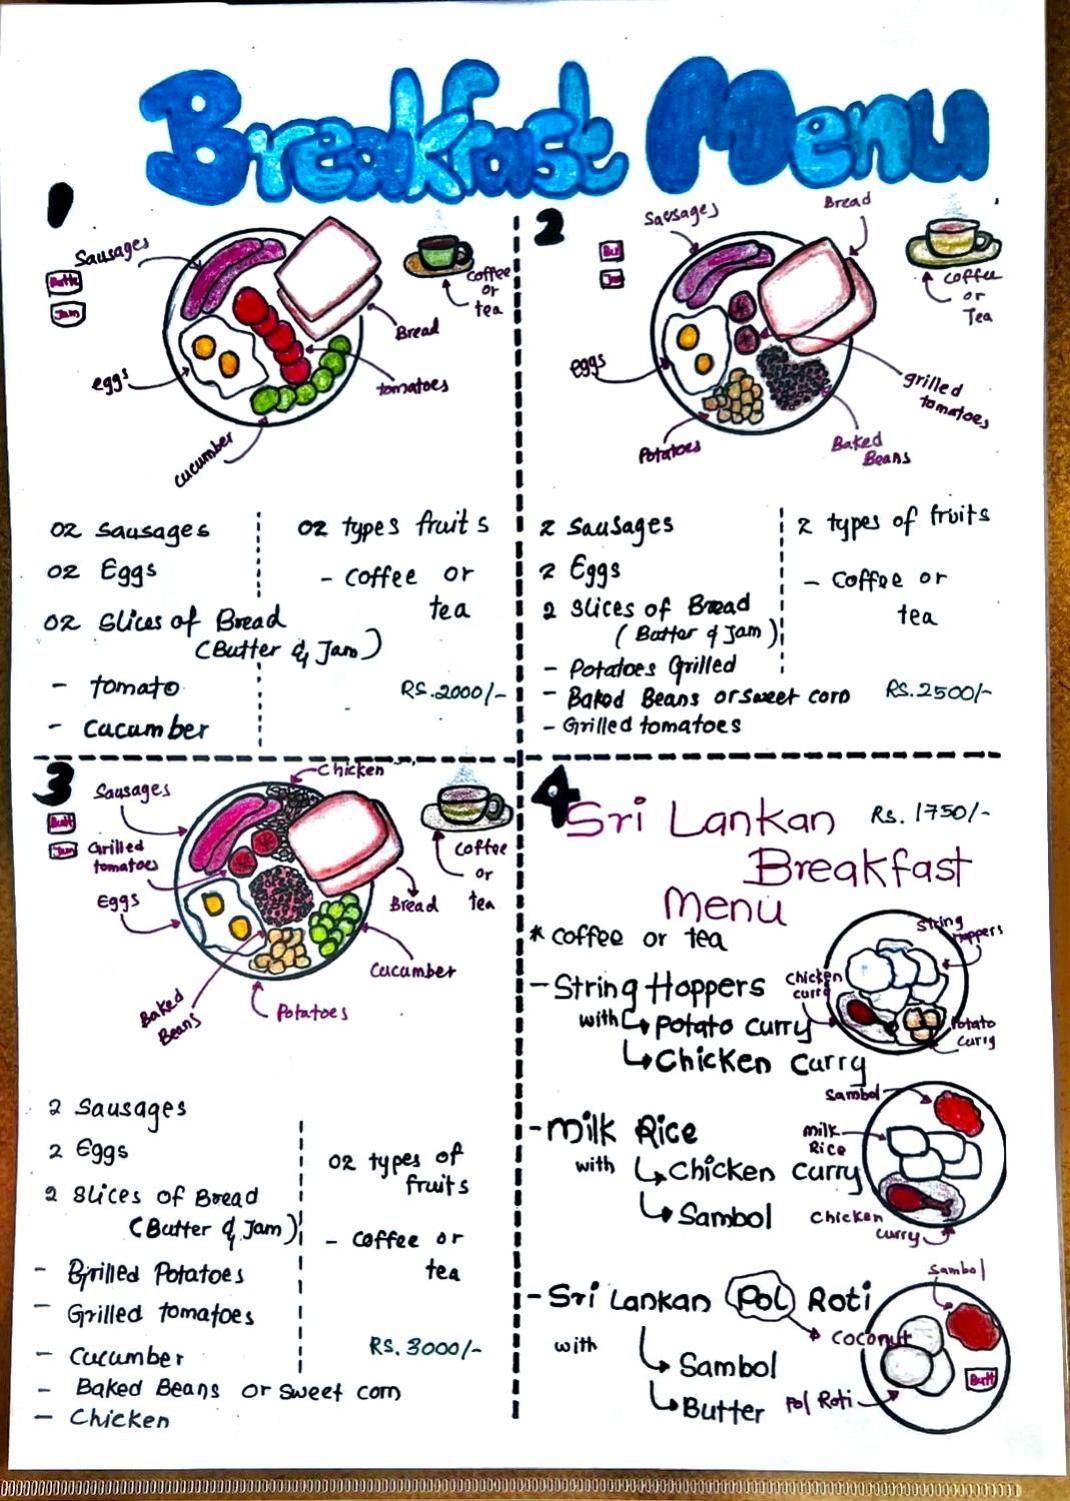 Breakfast Menu
1
Sausages
Butt
Jam
eggs
cucumber
tomatoes
Bread
coffee
or
tea
02 Sausages
02 Eggs
02 Slices of Bread
(Butter & Jam)
- tomato
- cucumber
02 types fruits
- coffee or
tea
RS.2000/-
2
Sausages
Bread
But
Jam
eggs
Potatoes
Baked
Beans
grilled
tomatoes
coffee
or
Tea
2 Sausages
2 Eggs
2 Slices of Bread
(Butter & Jam)
- Potatoes Grilled
- Baked Beans or Sweet corn
- Grilled tomatoes
2 types of fruits
- coffee or
tea
RS.2500/-
3
Chicken
Sausages
Butt
Jam
Grilled
tomatoes
Eggs
Baked
Beans
Potatoes
Cucumber
Bread
coffee
or
tea
2 Sausages
2 Eggs
2 Slices of Bread
(Butter & Jam)
- Grilled Potatoes
- Grilled tomatoes
- Cucumber
- Baked Beans or Sweet corn
- Chicken
02 types of
fruits
- coffee or
tea
RS. 3000/-
4
Sri Lankan
Rs. 1750/-
Breakfast
Menu
* coffee or tea
- String Hoppers
with Potato curry
Chicken curry
String
Hoppers
Chicken
curry
Potato
curry
- Milk Rice
with Chicken curry
Sambol
Sambol
Milk
Rice
Chicken
curry
- Sri Lankan Pol Roti
Coconut
with
Sambol
Butter
Sambol
Butt
Pol Roti